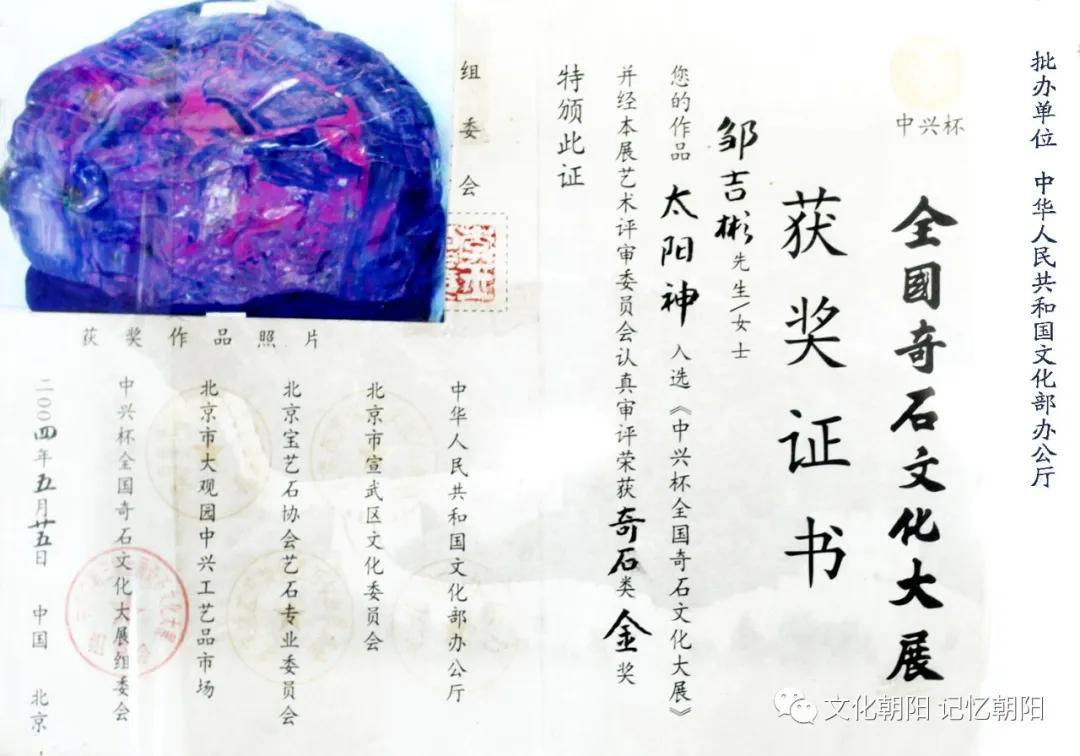 批办单位 中华人民共和国文化部办公厅
中兴杯
全国奇石文化大展
获奖证书
邹吉彬先生/女士
您的作品 太阳神 入选《中兴杯全国奇石文化大展》
并经本展艺术评审委员会认真审评荣获奇石类金奖
特颁此证
组委会
获奖作品照片
中华人民共和国文化部办公厅
北京市宣武区文化委员会
北京宝艺石协会艺石专业委员会
北京市大观园中兴工艺品市场
中兴杯全国奇石文化大展组委会
二〇〇四年五月廿五日 中国 北京
文化朝阳 记忆朝阳